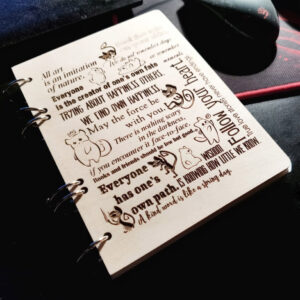 All art
is an imitation
of nature.
We do not remember days,
moments
Everyone
is the creator of one's own fate
TRYING ABOUT HAPPINESS OTHERS,
WE FIND OWN HAPPINESS
May the force be
with you!
Follow your heart
There is nothing scary
in the darkness,
if you encounter it face-to-face.
Books and friends should be few but good.
WISDOM
IS KNOWING HOW LITTLE WE KNOW.
Everyone
has one's
own path.
A kind word is like a spring day.